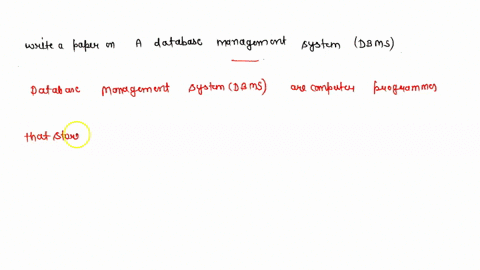 write a paper on A database management system (DBMS)
Database Management System (DBMS) are computer programmes
that store